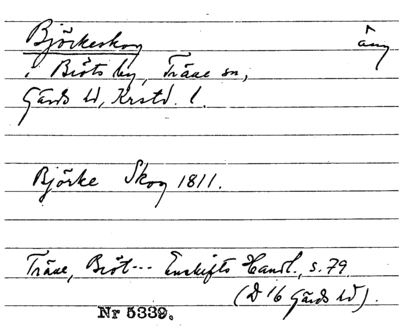 Björkeskog äng
i Bröts by, Träne sn,
Gärds hd, Krstd. l.
Björke Skog 1811.
Träne, Bröt--- Enskifts Handl., s. 79
(D 16 Gärds hd).
Nr 5339.